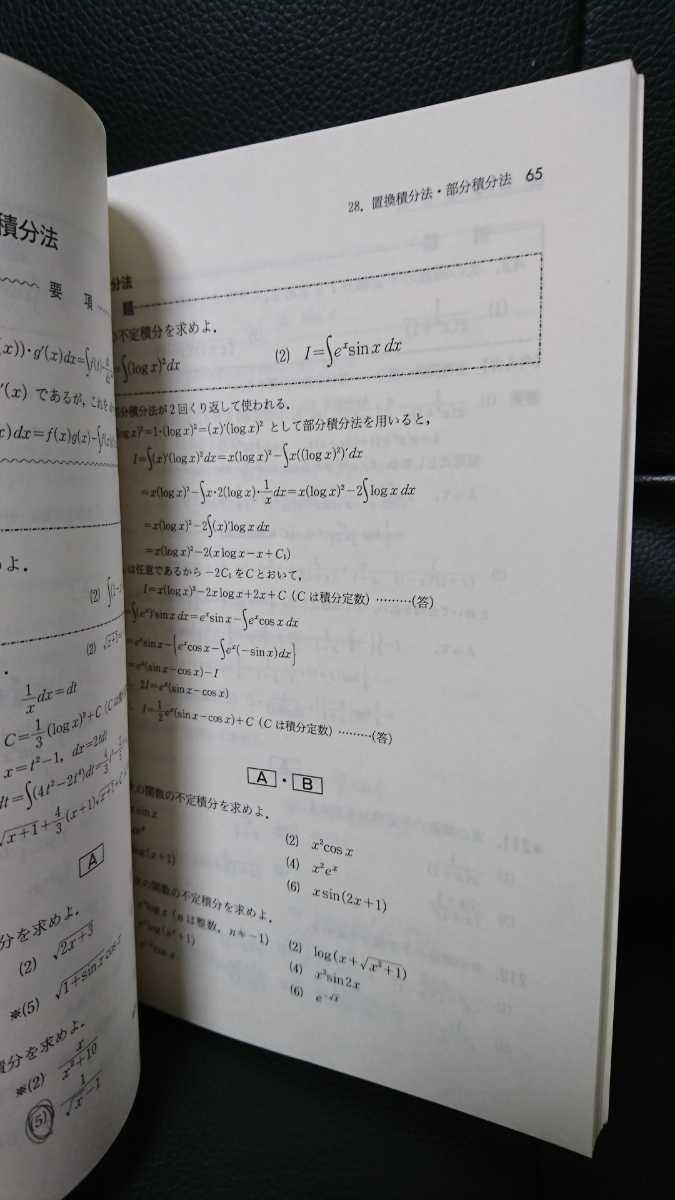 積分法
要 項
x))・g'(x)dx=∫f(t)
'(x) であるが,これを
x)dx=f(x)g(x)-∫f(x
よ.
(2) ∫(1-x
(2) √x+1=
1/x dx=dt
C=1/3(log x)³+C (C
x=t²-1, dx=2tdt
dt=∫(4t²-2t⁴)dt=4/3t³-
√x+1+4/3(x+1)√x+1+C
A
分を求めよ.
(2) √2x+3
※(5) √1+sin x cos x
積分を求めよ.
※(2) x/x²+10
(5) 1/√x-1
28. 置換積分法・部分積分法 65
分法
題
の不定積分を求めよ.
=∫(log x)²dx (2) I=∫eˣsin x dx
部分積分法が2回くり返して使われる.
(log x)²=1・(log x)²=(x)'(log x)² として部分積分法を用いると,
I=∫(x)'(log x)²dx=x(log x)²-∫x((log x)²)'dx
=x(log x)²-∫x・2(log x)・1/x dx=x(log x)²-2∫log x dx
=x(log x)²-2∫(x)'log x dx
=x(log x)²-2(x log x-x+C₁)
は任意であるから -2C₁をCとおいて,
I=x(log x)²-2x log x+2x+C (Cは積分定数) ………(答)
=∫(eˣ)'sin x dx=eˣsin x-∫eˣcos x dx
=eˣsin x-{eˣcos x-∫eˣ(-sin x)dx}
=eˣ(sin x-cos x)-I
2I=eˣ(sin x-cos x)
I=1/2eˣ(sin x-cos x)+C (Cは積分定数) ………(答)
A・B
次の関数の不定積分を求めよ.
x sin x (2) x²cos x
xeˣ (4) x²eˣ
log(x+1) (6) x sin(2x+1)
次の関数の不定積分を求めよ.
xⁿlog x (nは整数, n≠-1) (2) log(x+√x²+1)
eˣlog(eˣ+1) (4) x³sin 2x
cos x (6) e^-√x